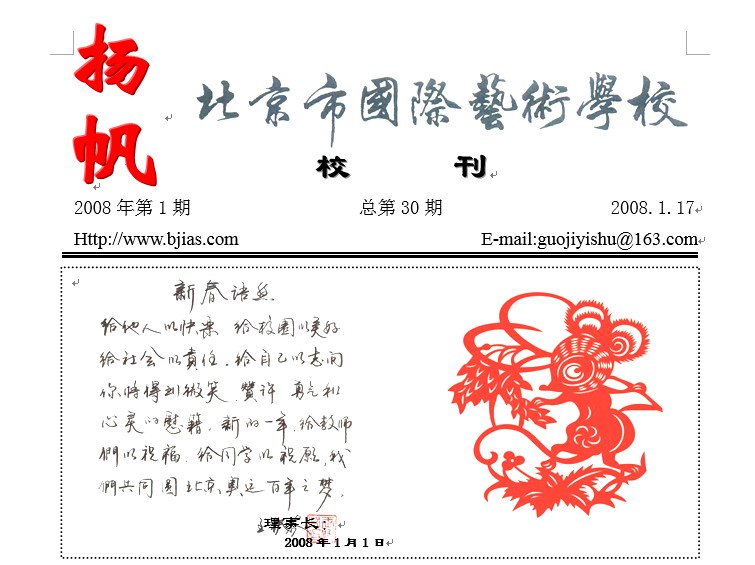 扬帆
北京市國際藝術學校
校 刊
2008年第1期 总第30期 2008.1.17
Http://www.bjias.com E-mail:guojiyishu@163.com
新春语丝
给他人以快乐 给校園以美好
给社会以責任，给自己以志向
你将得到微笑、贊许 勇气和
心灵的慰籍。新的一年，给教师
們以祝福，给同学以祝愿，我
們共同圆北京奥运百年之梦。
理事长：
2008年1月1日